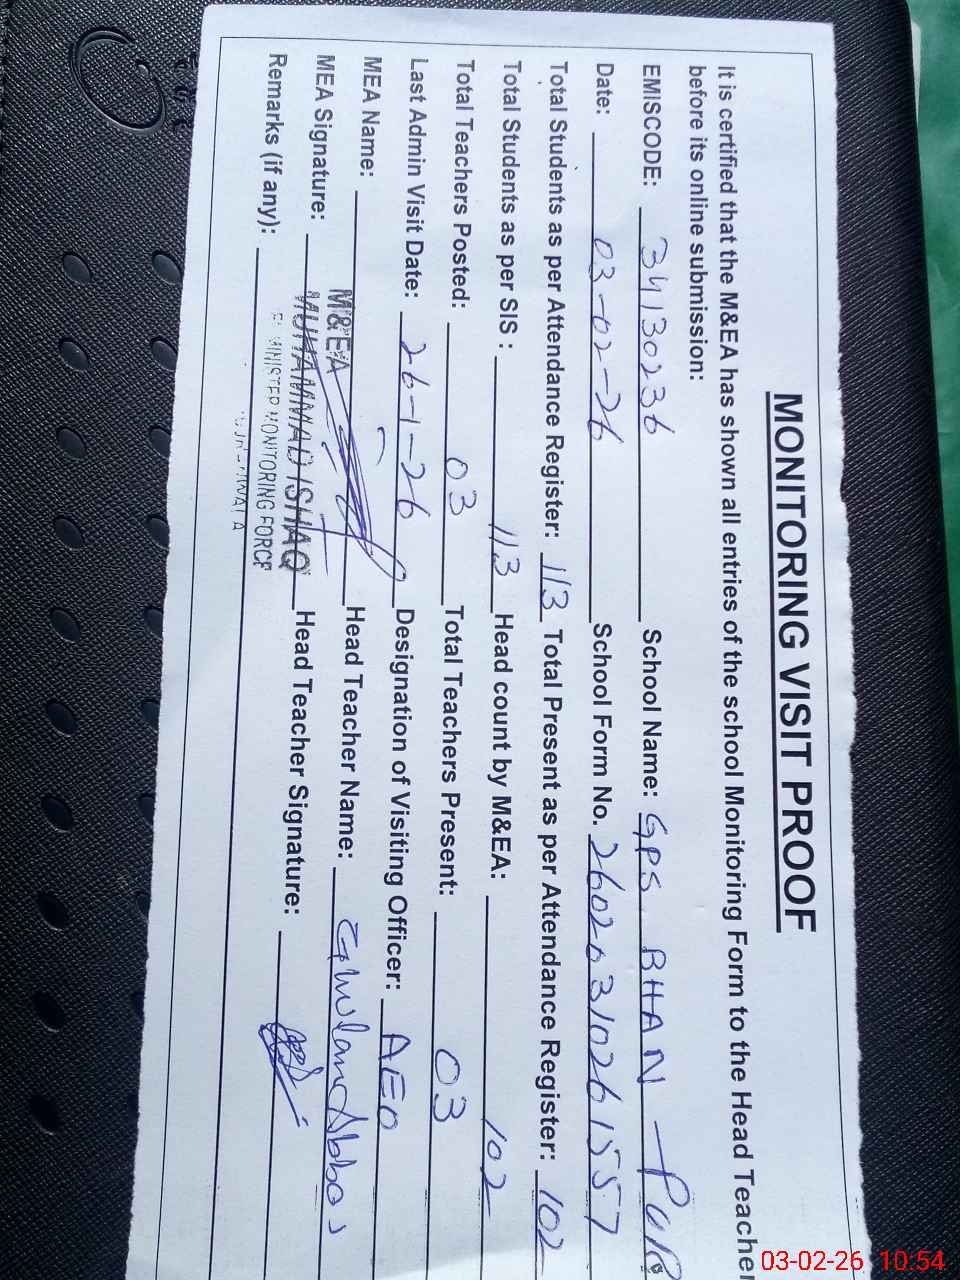 MONITORING VISIT PROOF
It is certified that the M&EA has shown all entries of the school Monitoring Form to the Head Teacher
before its online submission:
EMISCODE: 34130236 School Name: GPS BHAN-PUR
Date: 03-02-26 School Form No. 26020310261557
Total Students as per Attendance Register: 113 Total Present as per Attendance Register: 102
Total Students as per SIS : 113 Head count by M&EA: 102
Total Teachers Posted: 03 Total Teachers Present: 03
Last Admin Visit Date: 26-1-26 Designation of Visiting Officer: AEO
MEA Name: Head Teacher Name: Ghulam Abbas
M&EA
MEA Signature: MUHAMMAD ISHAQ Head Teacher Signature:
MINISTER MONITORING FORCE
Remarks (if any):
03-02-26 10:54